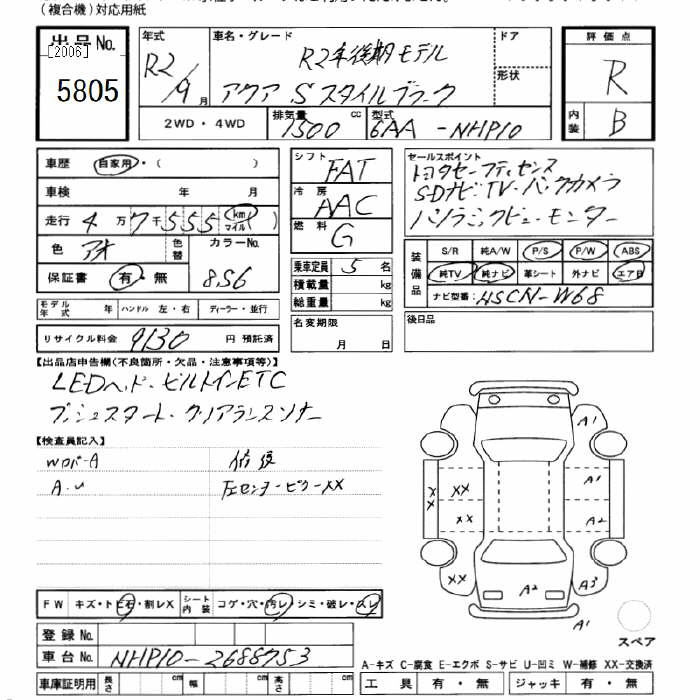 (複合機)対応用紙
出品No.
[2006]
5805
年式
R2/9月
車名・グレード
R2年後期モデル
アクア Sスタイルブラック
ドア
形状
2WD・4WD
排気量
1500cc
型式
6AA-NHP10
評価点
R
内装
B
車歴 自家用・( )
車検 年 月
走行 4万7千555 km マイル( )
色 アオ 色替 カラーNo. 856
保証書 有・無
モデル年式 年 ハンドル 左・右 ディーラー・並行
リサイクル料金 9130 円 預託済
シフト FAT
冷房 AAC
燃料 G
乗車定員 5名
積載量 kg
総重量 kg
名変期限 月 日
セールスポイント
トヨタセーフティセンス
SDナビ・TV・バックカメラ
パノラミックビューモニター
装備品
S/R 純A/W P/S P/W ABS
純TV 純ナビ 革シート 外ナビ エアB
ナビ型番: HSCN-W68
後日品
【出品店申告欄(不良箇所・欠品・注意事項等)】
LEDヘッド・ビルトインETC
プッシュスタート・クリアランスソナー
【検査員記入】
WロバーA 修復
A.U 左センターピラーXX
A1
A1
XX XX
XX A2
XX A2 A3
A1
スペア
FW キズ・トビ石・割レX シート内装 コゲ・穴・汚レ・シミ・破レ・スレ
登録No.
車台No. NHP10-2688753
車庫証明用 長さ cm 幅 cm 高さ cm
A-キズ C-腐食 E-エクボ S-サビ U-凹ミ W-補修 XX-交換済
工具 有・無 ジャッキ 有・無